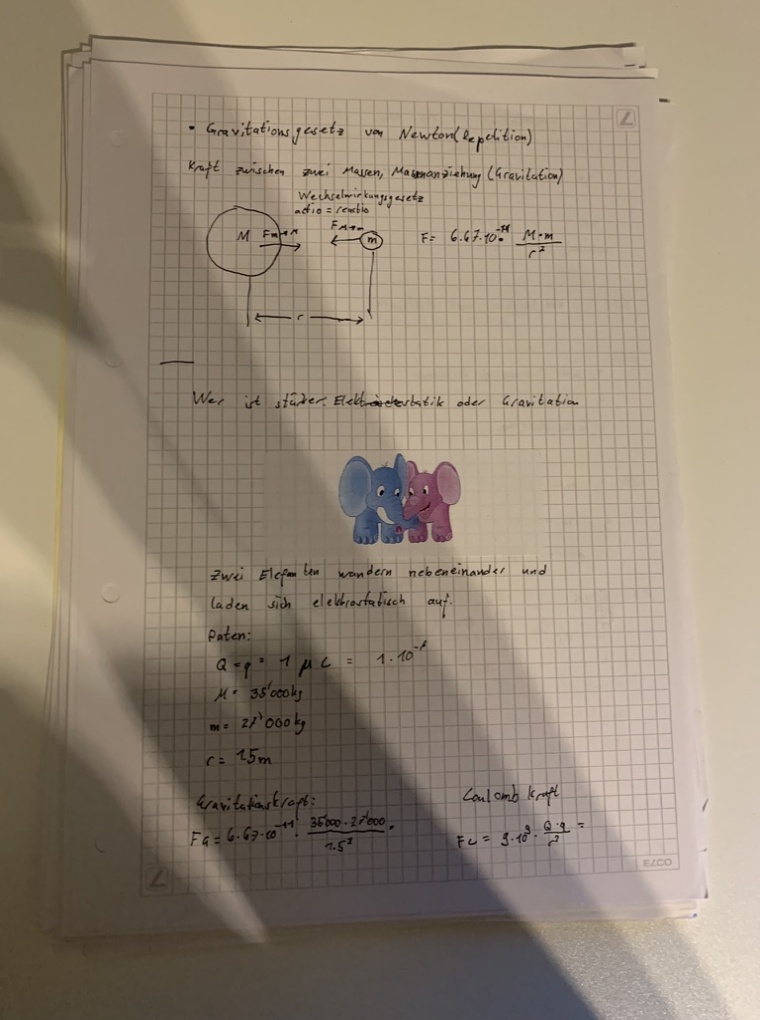 • Gravitationsgesetz von Newton (Repetition)
Kraft zwischen zwei Massen, Massenanziehung (Gravitation)
Wechselwirkungsgesetz
actio = reactio
M Fm→M FM→m m F = 6.67·10⁻¹¹ M·m / r²
r
Wer ist stärker: Elektrostatik oder Gravitation
Zwei Elefanten wandern nebeneinander und
laden sich elektrostatisch auf.
Daten:
Q = q = 1 μC = 1·10⁻⁶
M = 35'000kg
m = 27'000kg
r = 1.5m
Gravitationskraft: Coulomb kraft
FG = 6.67·10⁻¹¹ · 35'000·27'000 / 1.5² = FC = 9·10⁹ · Q·q / r² =
ELCO